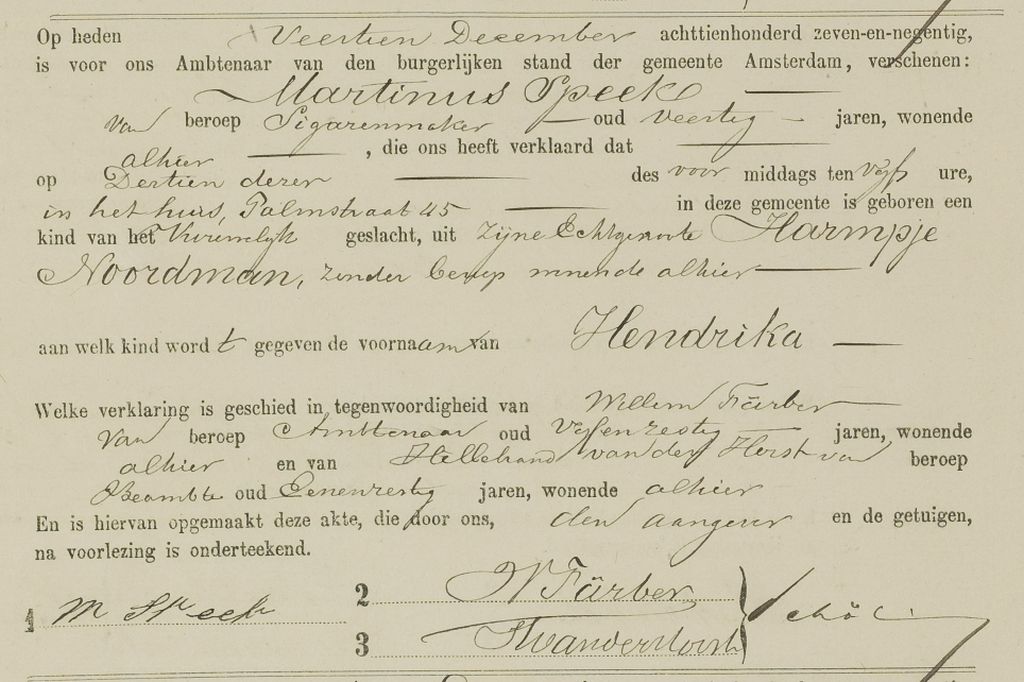 Op heden Veertien December achttienhonderd zeven-en-negentig,
is voor ons Ambtenaar van den burgerlijken stand der gemeente Amsterdam, verschenen:
Martinus Speek
van beroep Sigarenmaker oud veertig jaren, wonende
alhier, die ons heeft verklaard dat
op Dertien dezer des voor middags ten vyf ure,
in het huis, Palmstraat 45 in deze gemeente is geboren een
kind van het Vrouwelyk geslacht, uit zijne Echtgenoote Harmpje
Noordman, zonder beroep wonende alhier
aan welk kind wordt gegeven de voornaam van Hendrika
Welke verklaring is geschied in tegenwoordigheid van Willem Färber
van beroep Ambtenaar oud Vyfenzestig jaren, wonende
alhier en van Hillebrand van der Horst van beroep
Beambte oud Eenenzestig jaren, wonende alhier
En is hiervan opgemaakt deze akte, die door ons, den aangever en de getuigen,
na voorlezing is onderteekend.
1 M Speek
2 W Färber
3 HvanderHorst